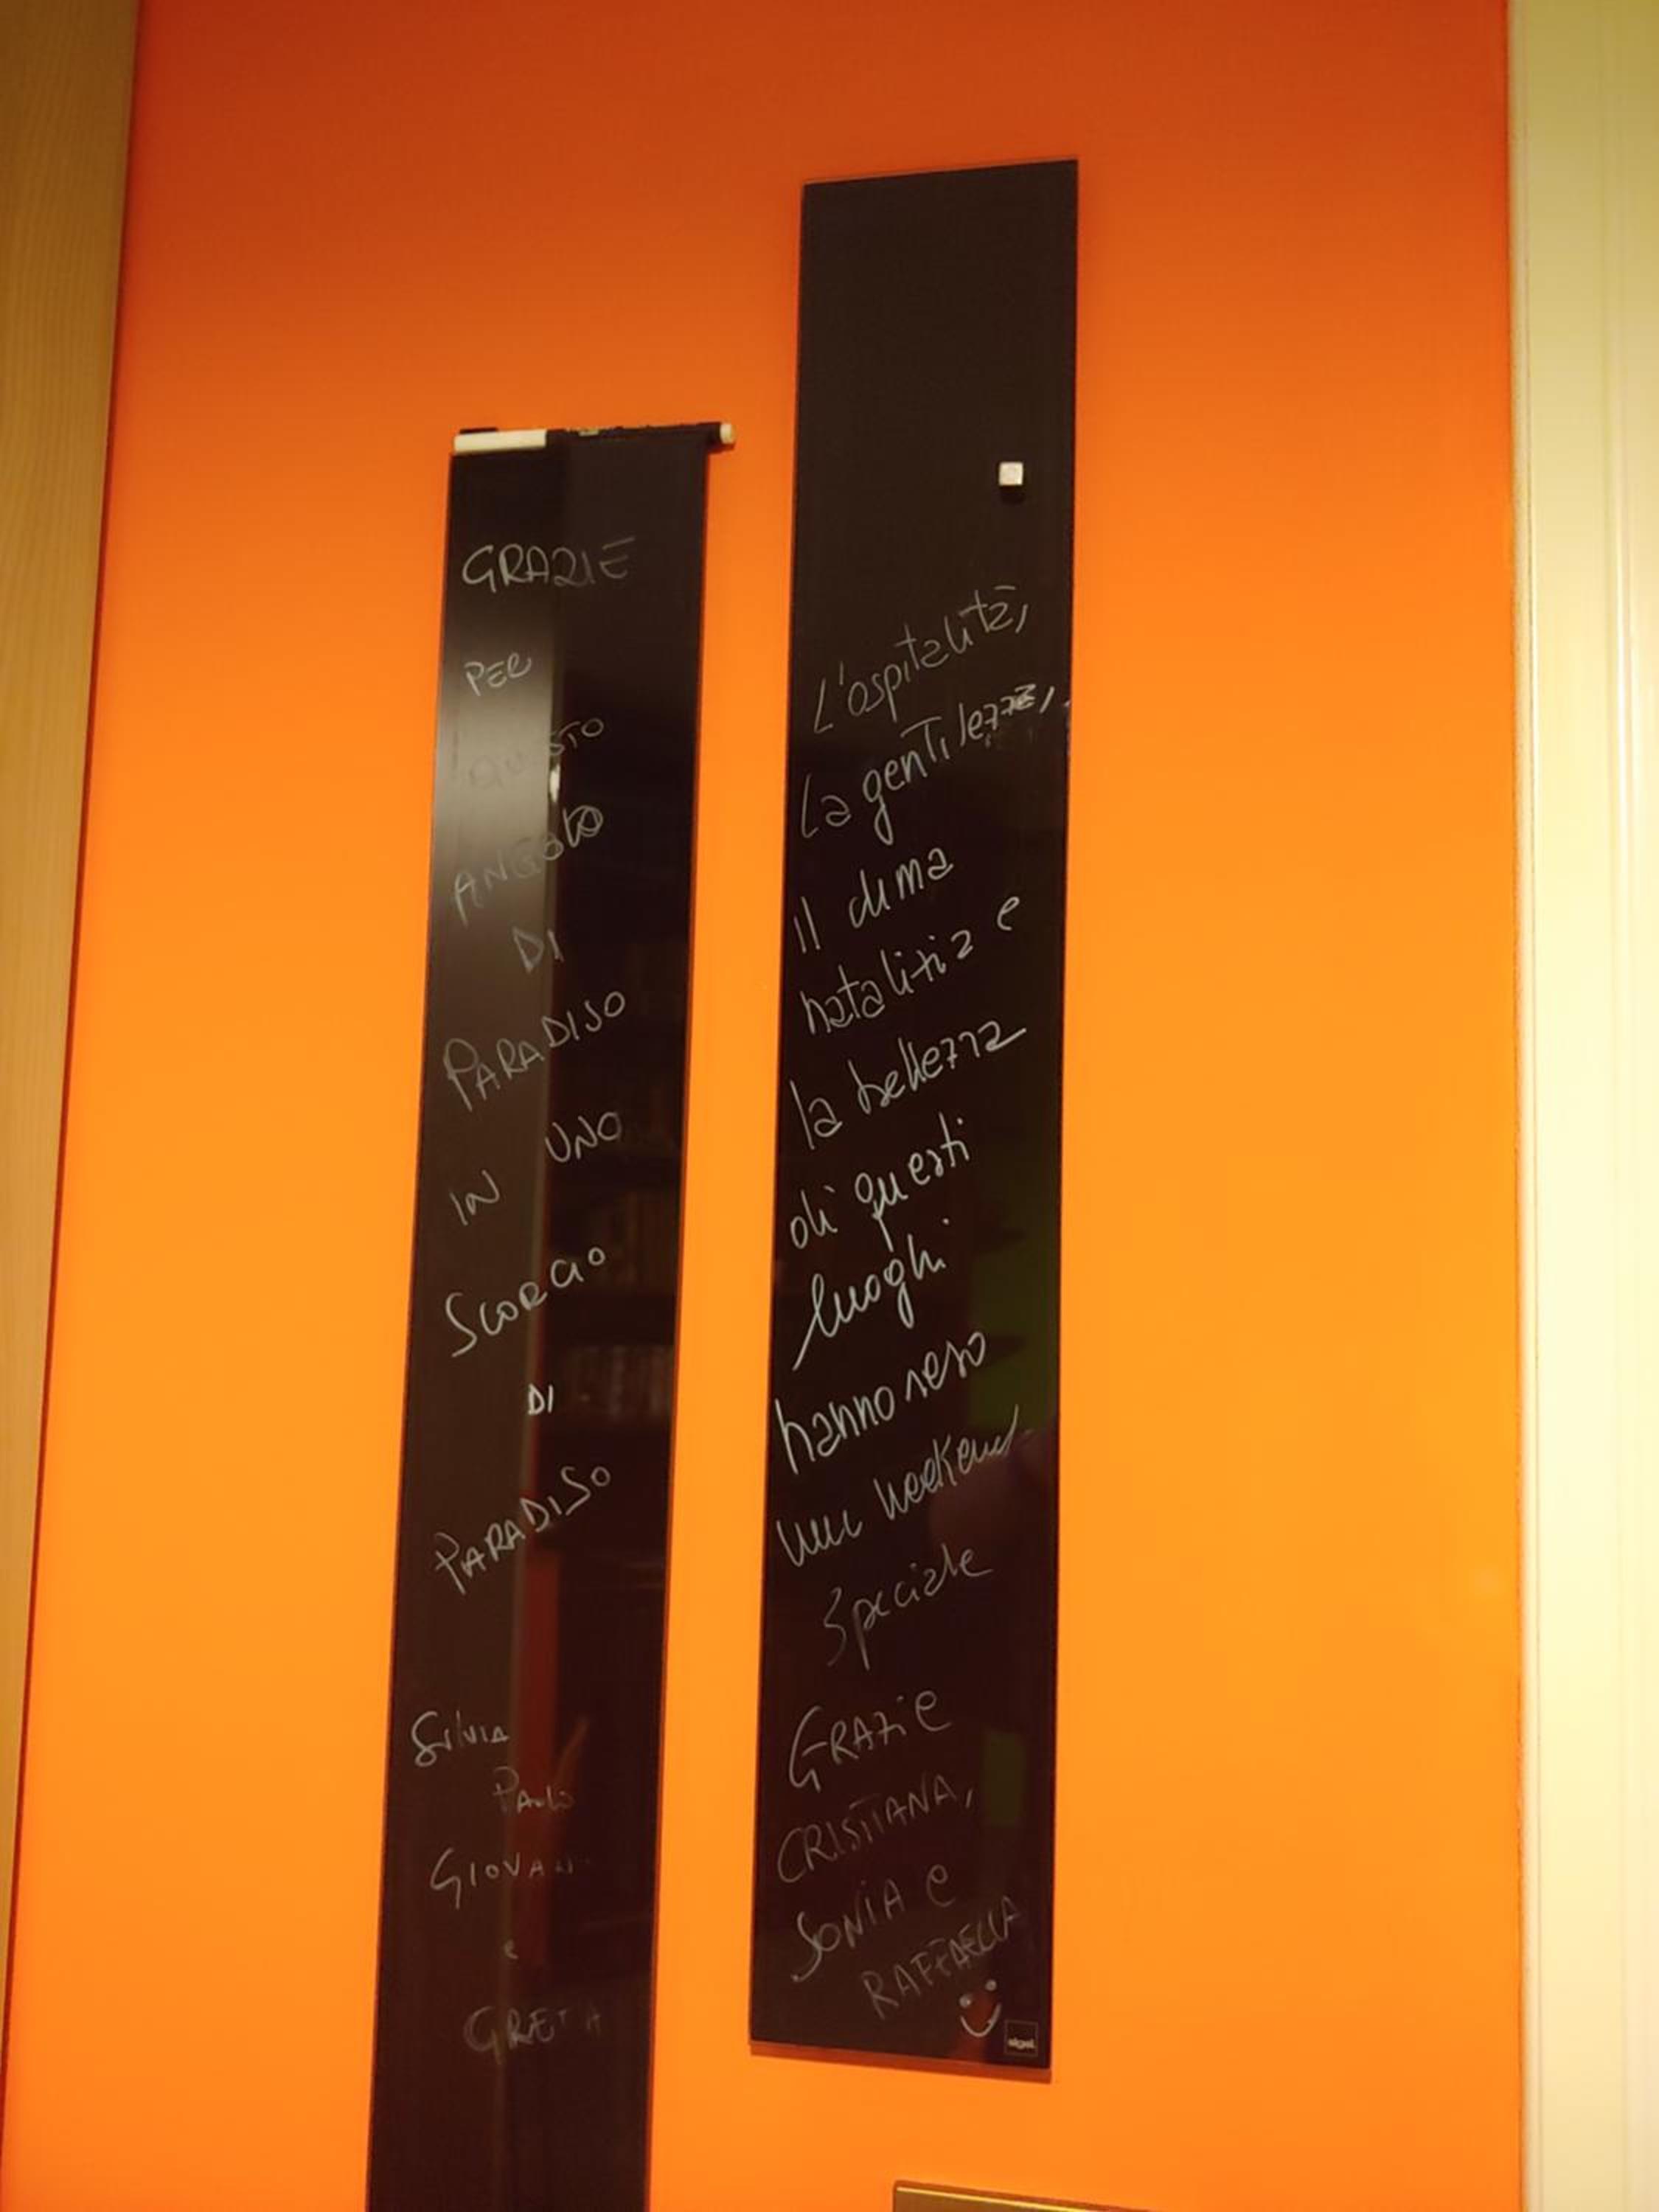 GRAZIE
PER
QUESTO
ANGOLO
DI
PARADISO
IN UNO
SCORCIO
DI
PARADISO
Silvia
Paolo
GIOVANNI
e
GRETA
L'ospitalità,
La gentilezza,
il clima
natalizia e
la bellezza
di questi
luoghi
hanno reso
un weekend
Speciale
GRAZIE
CRISTIANA,
SONIA e
RAFFAELLA
sigel